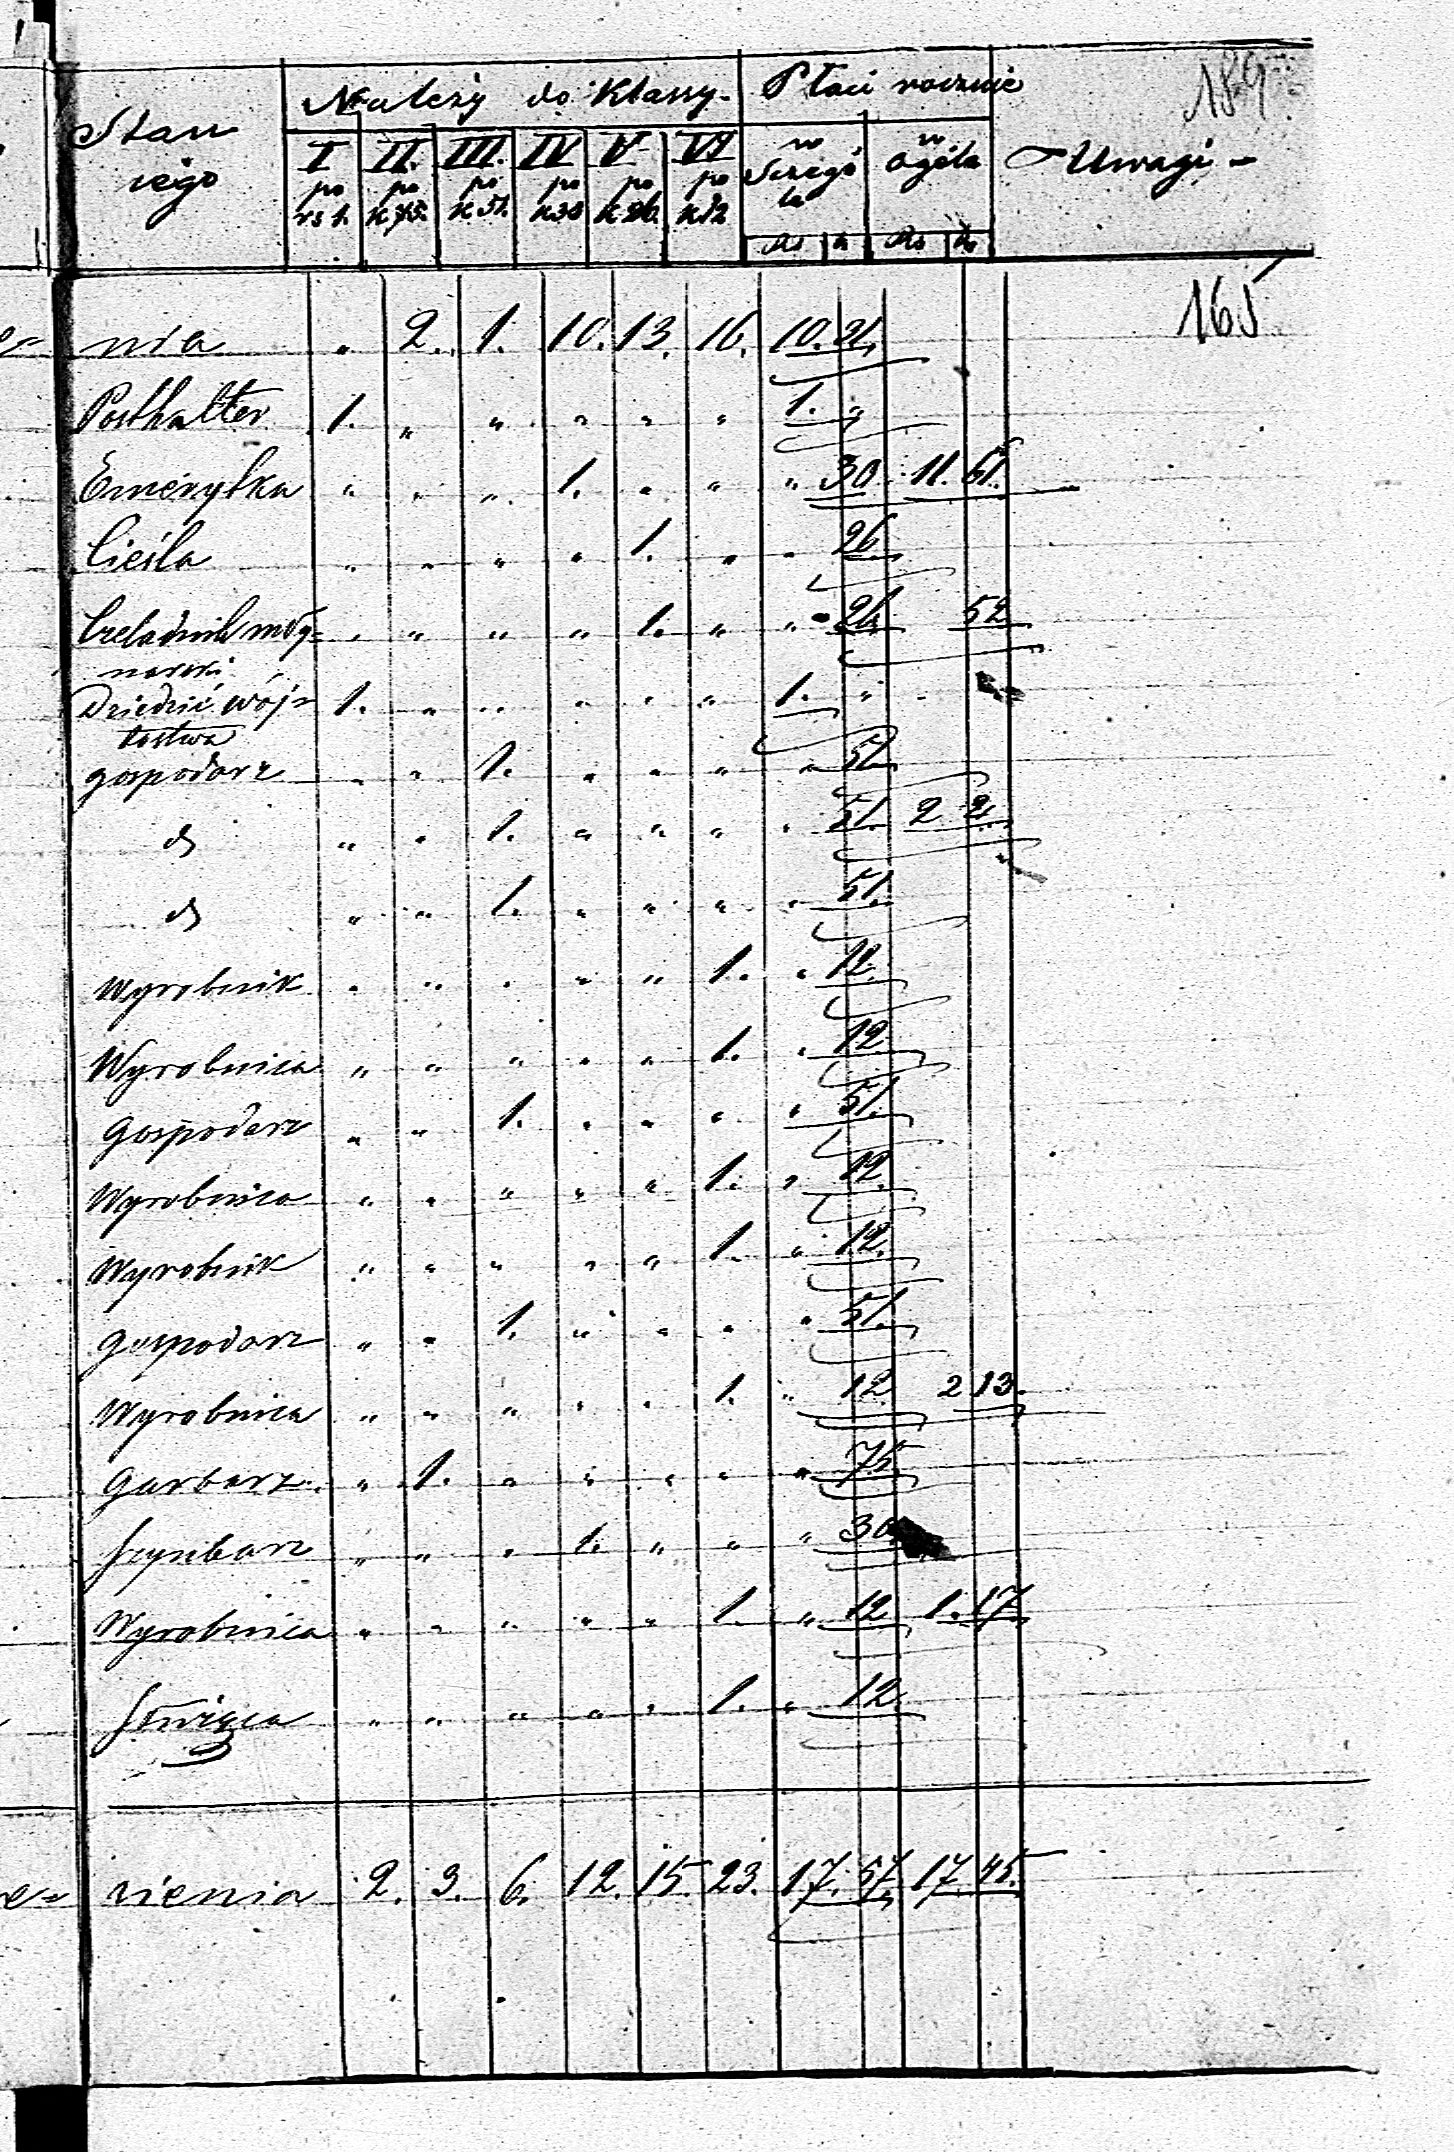 189
Należy do Klassy. Płaci rocznie
Stan jego I po rs 1. II. po k 75. III. po k 51. IV po k 30 V po k 26. VI po k 12 w Szczegó ła w ogóle Uwagi
Rs k Rs k
165
nia „ 2. 1. 10. 13. 16. 10. 21.
Posthalter 1. „ „ „ „ „ 1. „
Emerytka „ „ „ 1. „ „ „ 30 11. 51.
Cieśla „ „ „ „ 1. „ „ 26
Czeladnik mły= „ „ „ „ 1. „ „ 26 52
narski
Dziedzic wój= 1. „ „ „ „ „ 1. „
tostwa
gospodarz „ „ 1. „ „ „ „ 51
d „ „ 1. „ „ „ „ 51. 2 2.
d „ „ 1. „ „ „ „ 51.
Wyrobnik „ „ „ „ „ 1. „ 12.
Wyrobnica „ „ „ „ „ 1. „ 12
Gospodarz „ „ 1. „ „ „ „ 51.
Wyrobnica „ „ „ „ „ 1. „ 12.
Wyrobnik „ „ „ „ „ 1. „ 12.
Gospodarz „ „ 1. „ „ „ „ 51.
Wyrobnica „ „ „ „ „ 1. „ 12 2 13.
Garbarz „ 1. „ „ „ „ „ 75
Szynkarz „ „ „ 1. „ „ „ 30
Wyrobnica „ „ „ „ „ 1. „ 12 1. 17
Służąca „ „ „ „ „ 1. „ 12.
sienia 2. 3. 6. 12. 15. 23. 17. 57 17 45.